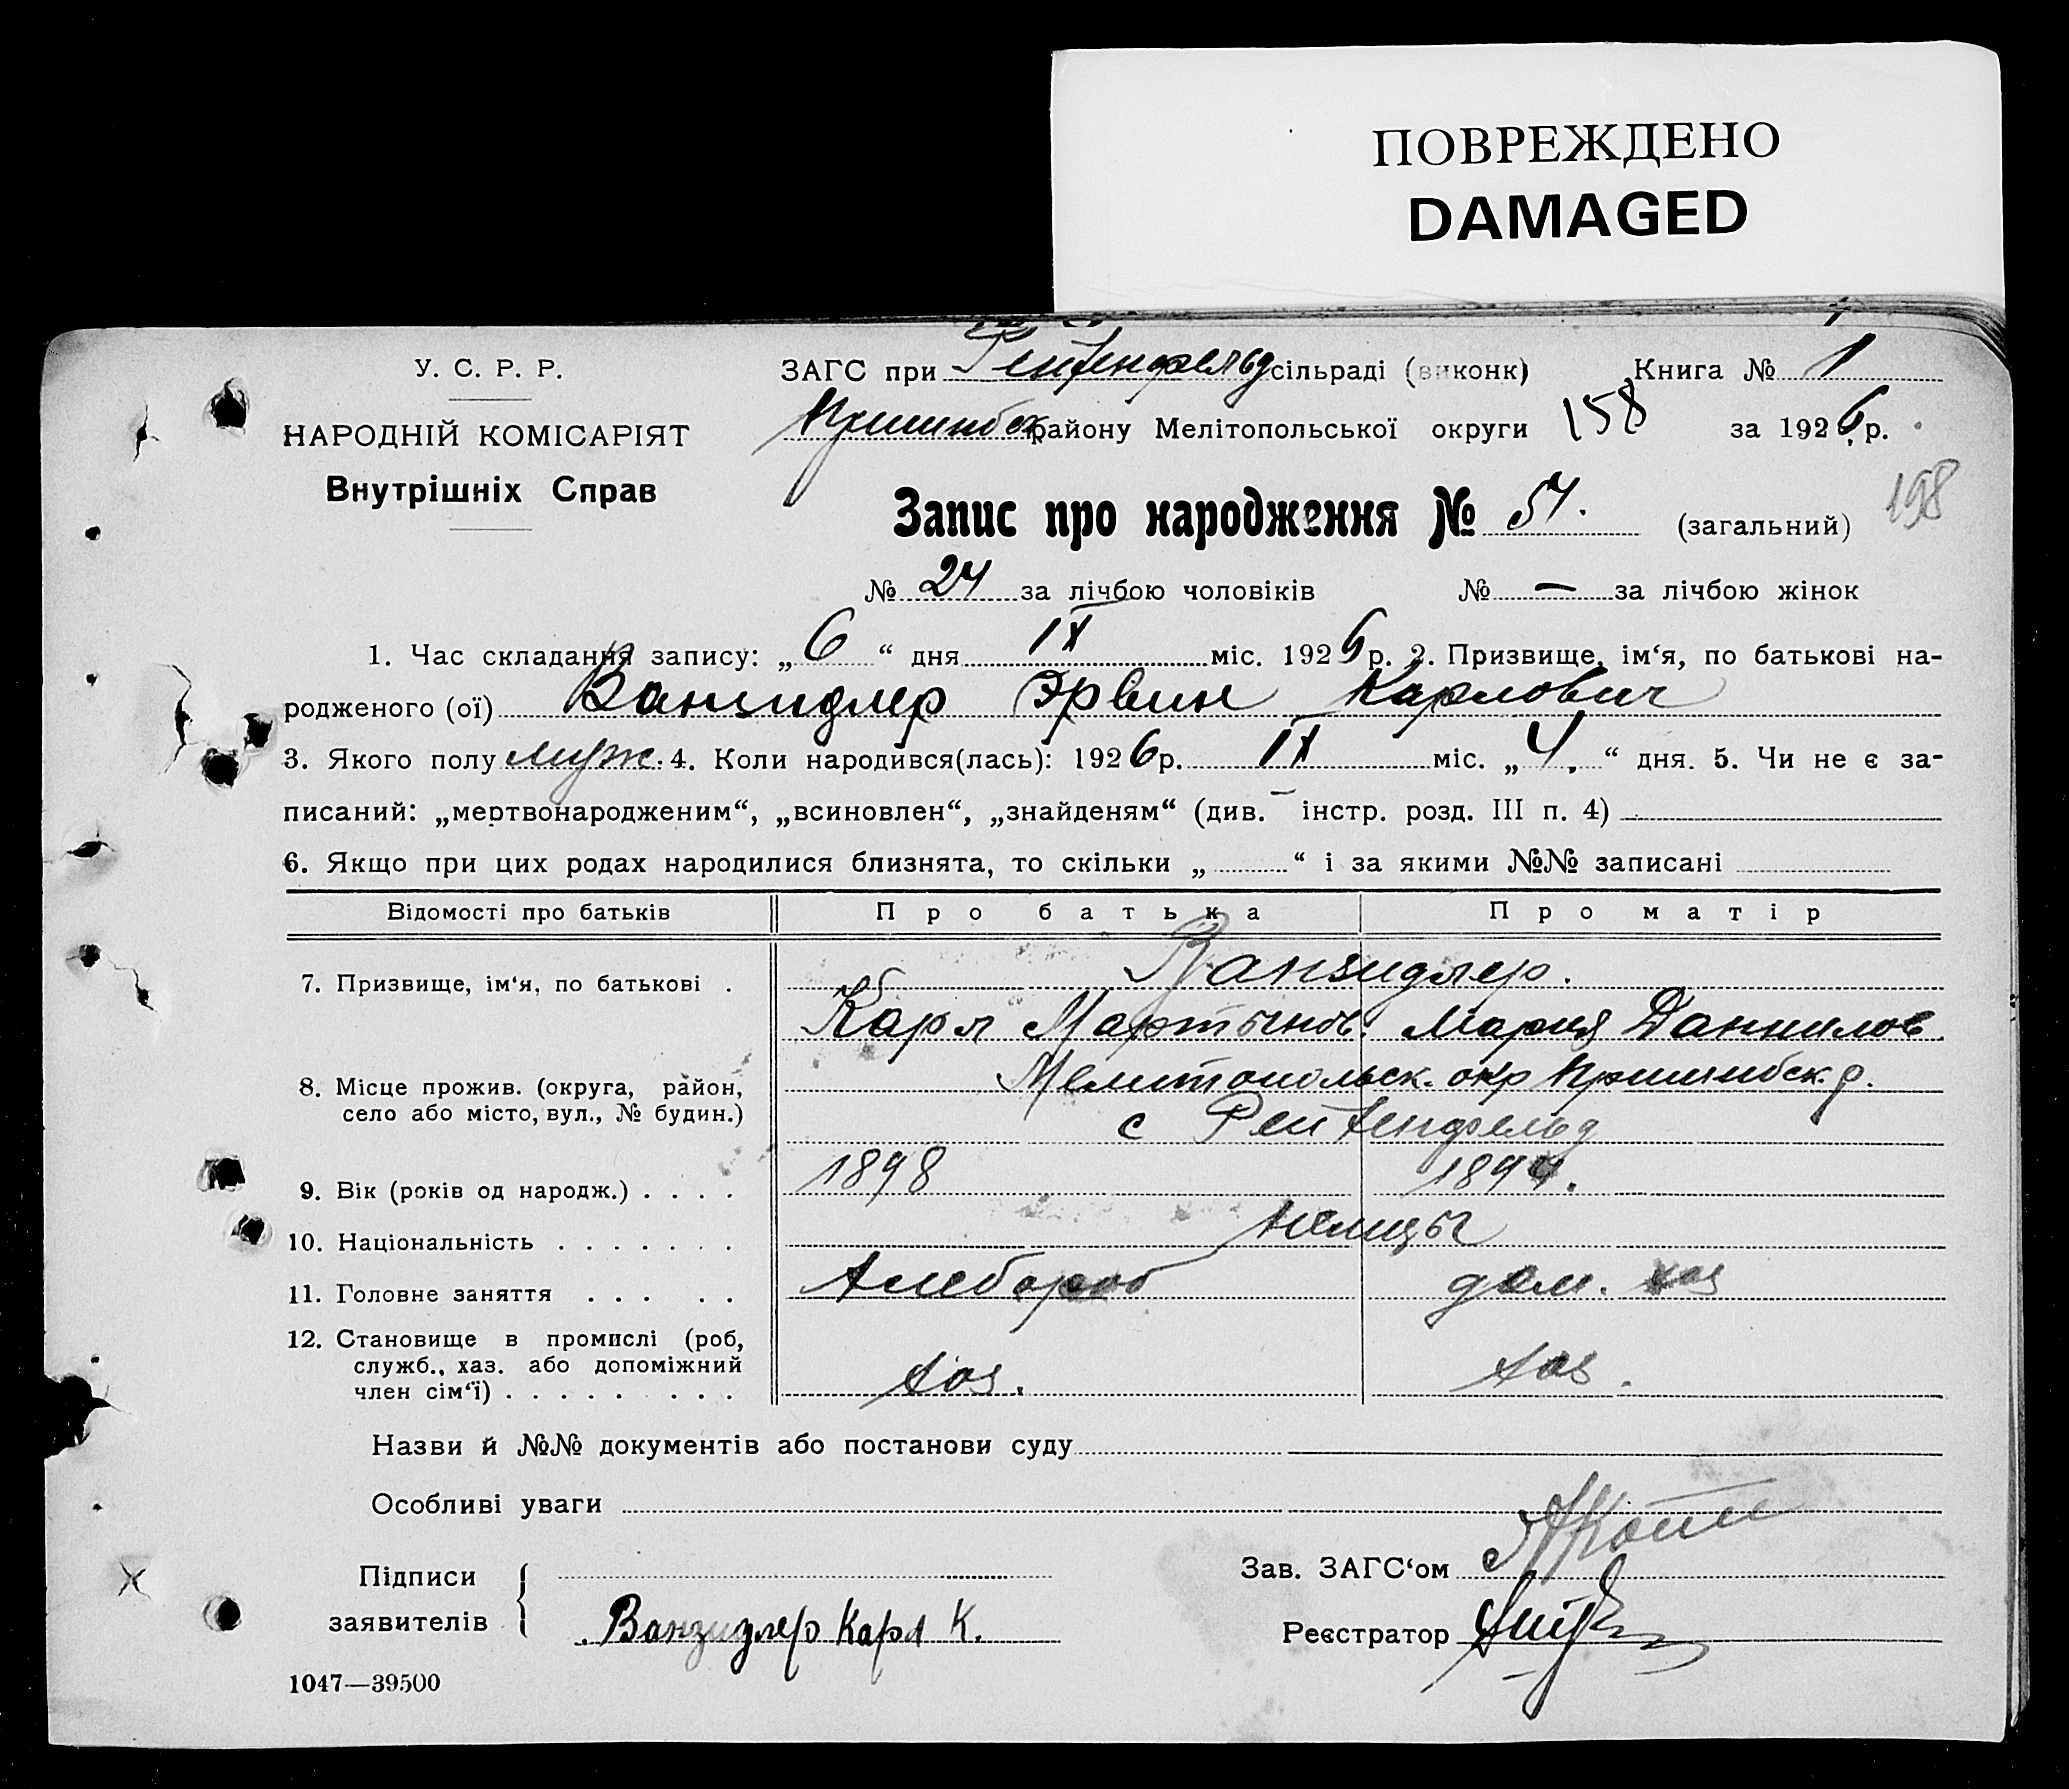 ПОВРЕЖДЕНО
DAMAGED
У. С. Р. Р.
НАРОДНІЙ КОМІСАРІЯТ
Внутрішніх Справ
ЗАГС при Рейхенфельд сільраді (виконк) Книга № 1
Пришибск району Мелітопольської округи 158 за 1926 р.
198
Запис про народження № 57. (загальний)
№ 24 за лічбою чоловіків № — за лічбою жінок
1. Час складання запису: „ 6 “ дня IX міс. 1926 р. 2. Призвище, ім‘я, по батькові на-
родженого (ої) Ванзидлер Эрвин Карлович
3. Якого полу муж. 4. Коли народився(лась): 1926 р. IX міс. „ 4. “ дня. 5. Чи не є за-
писаний: „мертвонародженим“, „всиновлен“, „знайденям“ (див. інстр. розд. III п. 4)
6. Якщо при цих родах народилися близнята, то скільки „ “ і за якими №№ записані
Відомості про батьків Про батька Про матір
7. Призвище, ім‘я, по батькові . Ванзидлер.
Карл Мартынов. Мария Данилов.
8. Місце прожив. (округа, район, Мелитопольск. окр Пришибск. р.
село або місто, вул., № будин.) с Рейхенфельд
9. Вік (років од народж.) . . . . 1898 1894.
10. Національність . . . . . . . немцы
11. Головне заняття . . . . . Хлебороб дом. хоз
12. Становище в промислі (роб,
служб., хаз. або допоміжний
член сім‘ї) . . . . . . . . хоз. хоз.
Назви й №№ документів або постанови суду
Особливі уваги
Підписи
заявителів Ванзидлер Карл К.
Зав. ЗАГС‘ом
Реєстратор
1047—39500